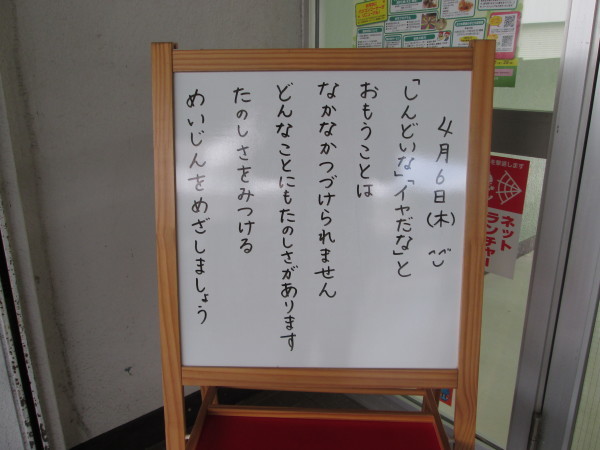 4月6日(木)
「しんどいな」「イヤだな」と
おもうことは
なかなかつづけられません
どんなことにもたのしさがあります
たのしさをみつける
めいじんをめざしましょう
ネット
ランチャー